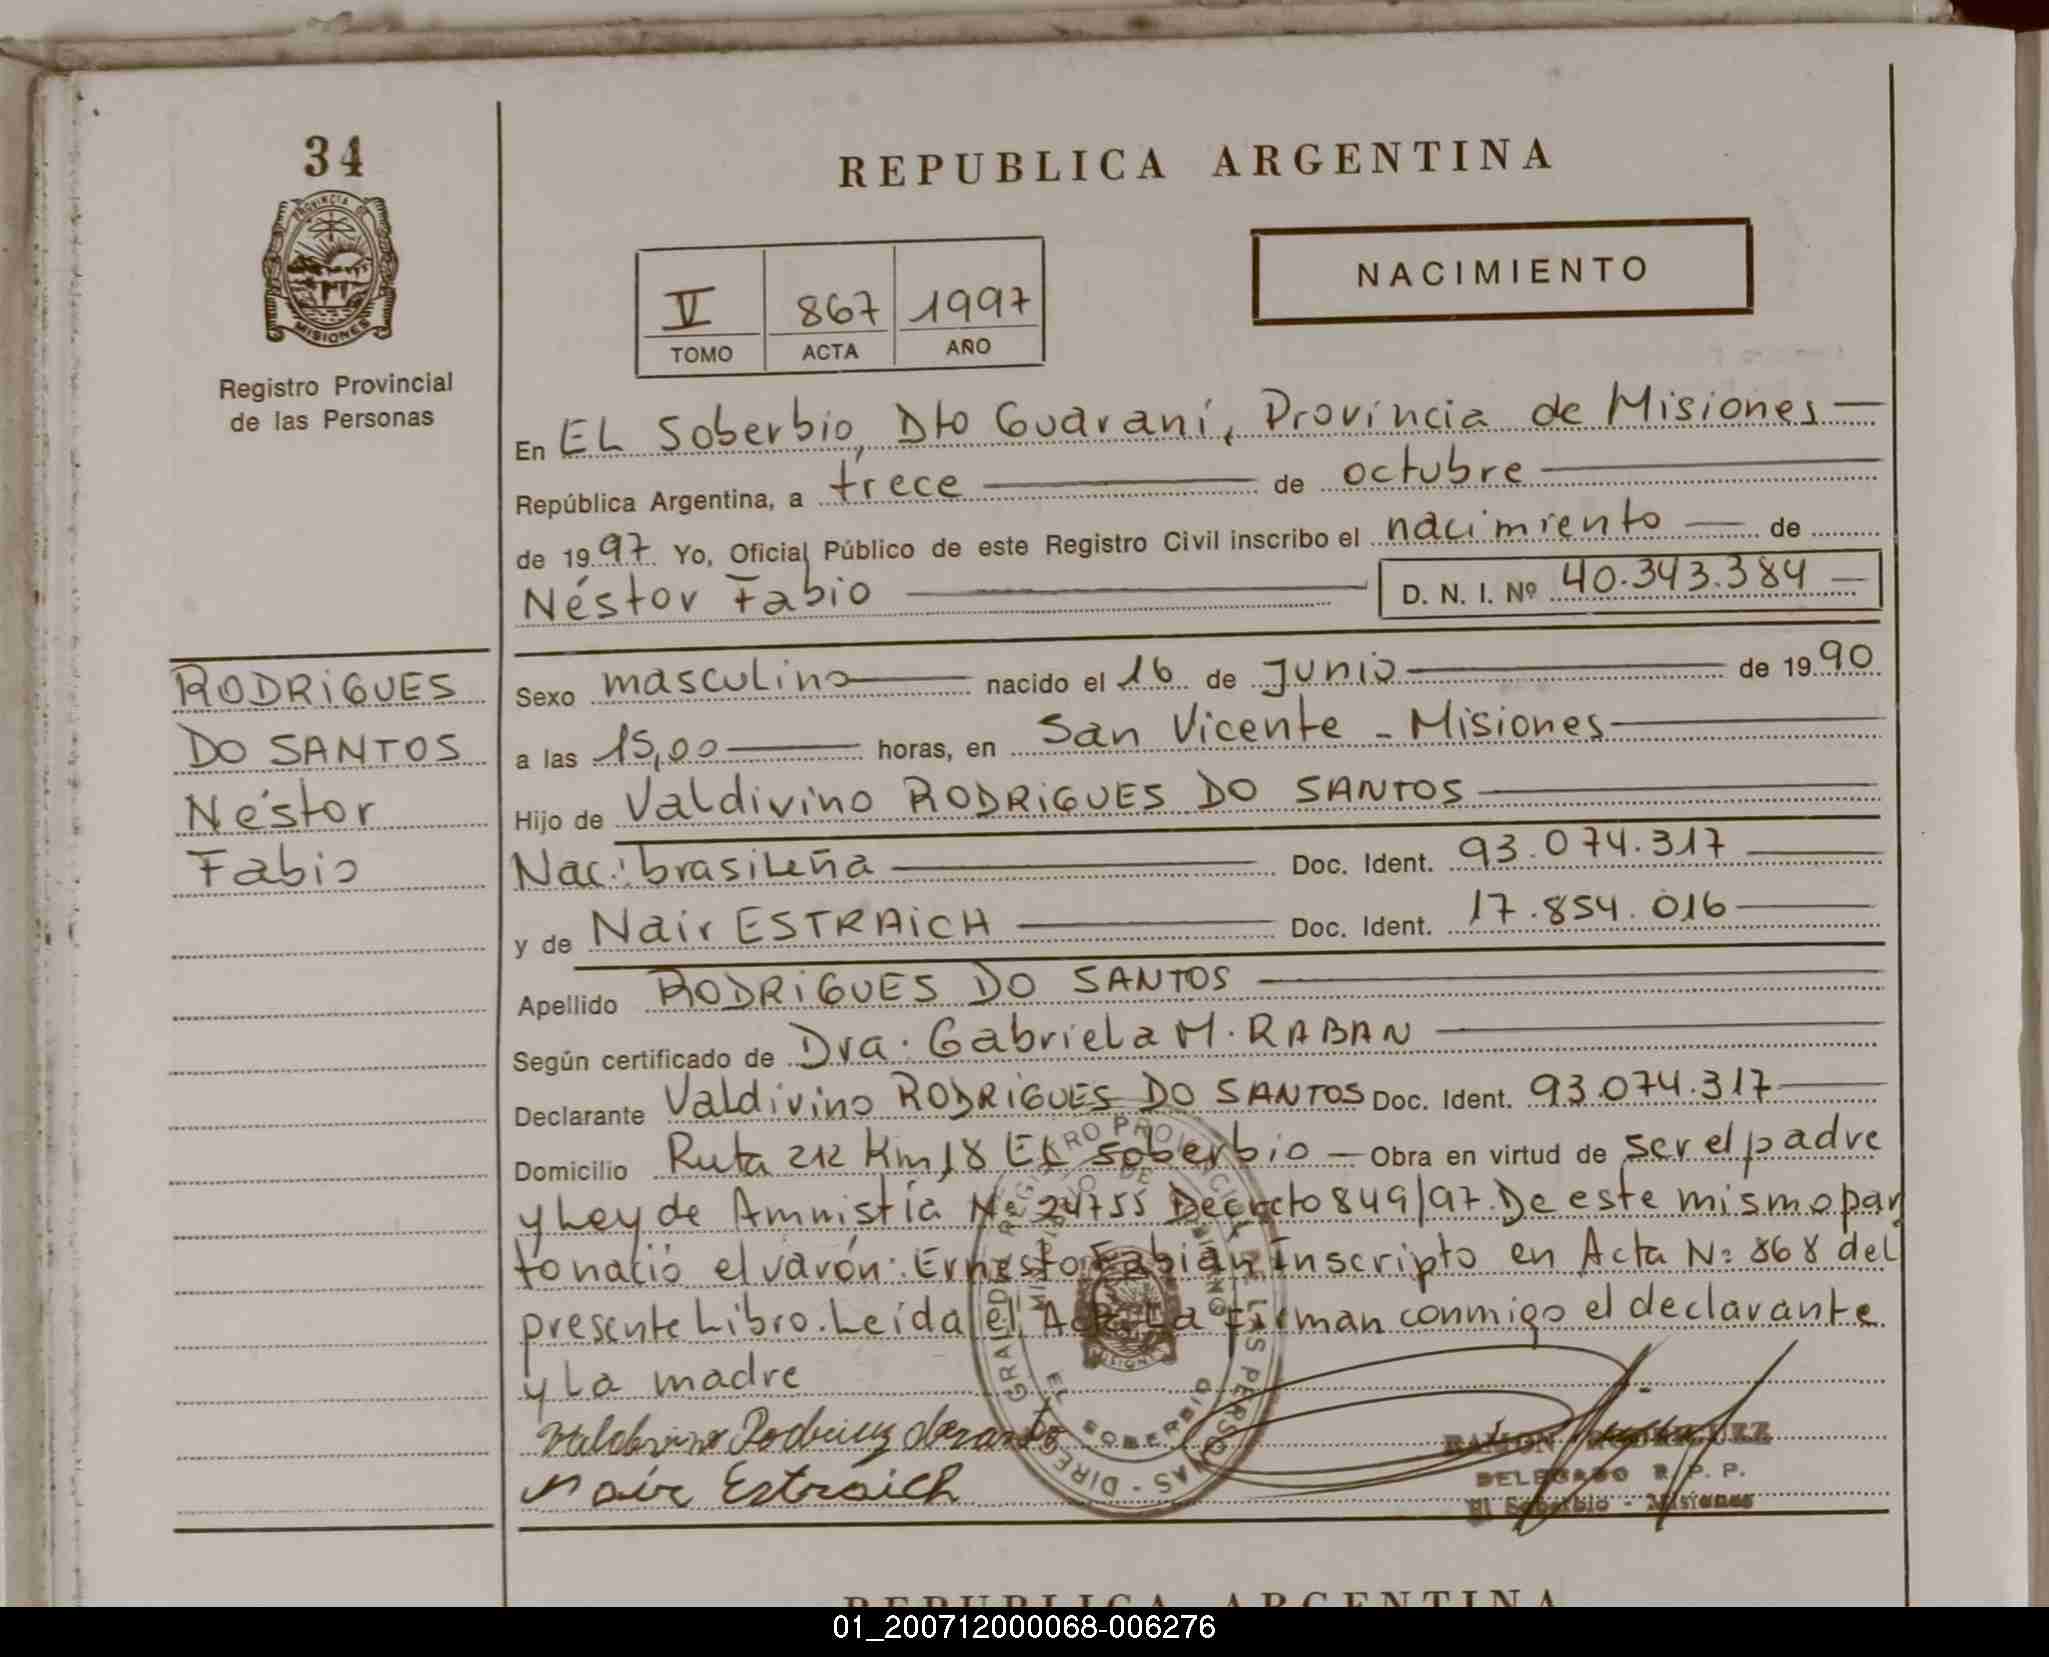 34
PROVINCIA DE
MISIONES
Registro Provincial
de las Personas
RODRIGUES
DO SANTOS
Néstor
Fabio
REPUBLICA ARGENTINA
V 867 1997
TOMO ACTA AÑO
NACIMIENTO
En EL Soberbio, Dto Guaraní, Provincia de Misiones —
República Argentina, a trece — de octubre —
de 1997. Yo, Oficial Público de este Registro Civil inscribo el nacimiento — de
Néstor Fabio — D. N. I. Nº 40.343.384 —
Sexo masculino — nacido el 16 de Junio — de 1990
a las 15,00 — horas, en San Vicente - Misiones —
Hijo de Valdivino RODRIGUES DO SANTOS —
Nac: brasileña — Doc. Ident. 93.074.317 —
y de Nair ESTRAICH — Doc. Ident. 17.854.016 —
Apellido RODRIGUES DO SANTOS —
Según certificado de Dra. Gabriela M. RABAN —
Declarante Valdivino RODRIGUES DO SANTOS Doc. Ident. 93.074.317 —
Domicilio Ruta 212 Km 18 EL Soberbio — Obra en virtud de ser el padre
y Ley de Amnistía Nº 24755 Decreto 849/97. De este mismo par
to nació el varón: Ernesto Fabián Inscripto en Acta Nº 868 del
presente Libro. Leída el Acta La firman conmigo el declarante
y La madre
Nair Estraich
EL SOBERBIO
MISIONES
RAMON RODRIGUEZ
DELEGADO R. P. P.
El Soberbio - Misiones
REPUBLICA ARGENTINA
01_200712000068-006276